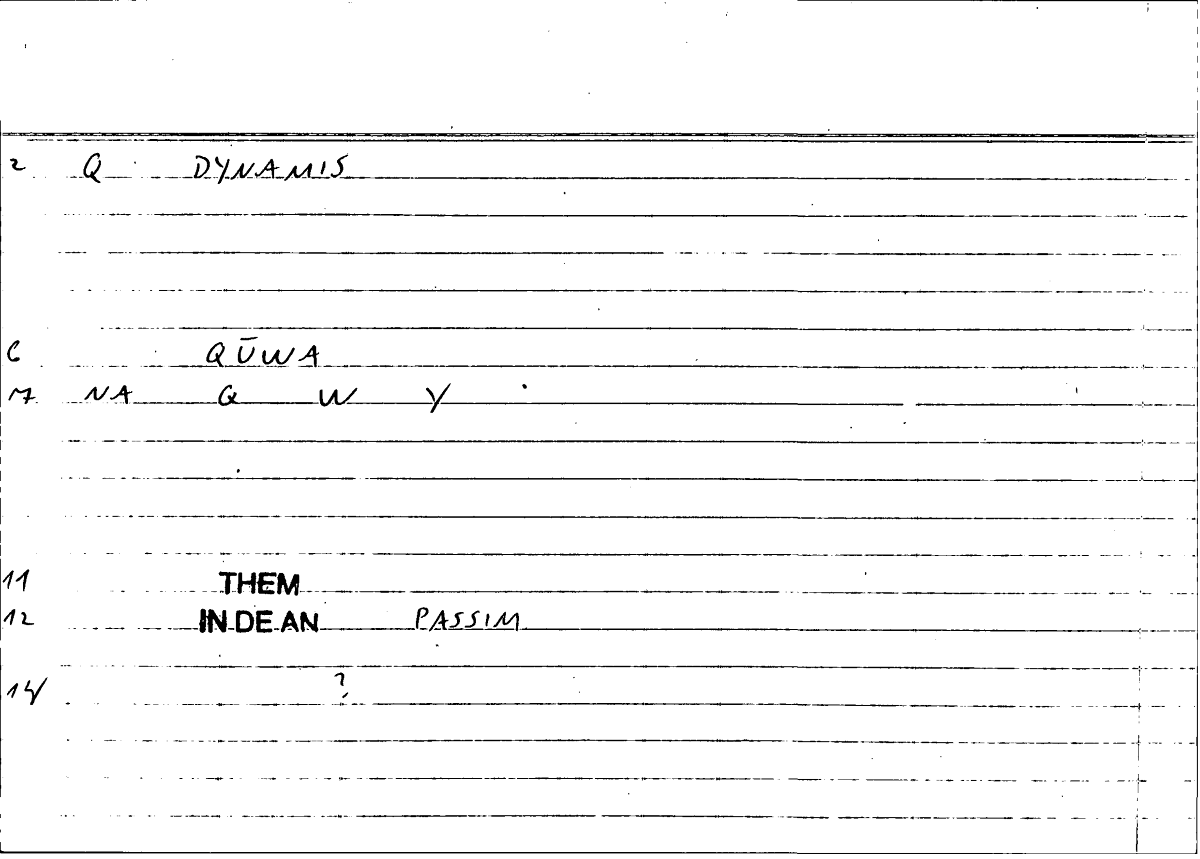 2 Q DYNAMIS
6 QŪWA
7 NA Q W Y
11 THEM
12 IN DE AN PASSIM
14 ?